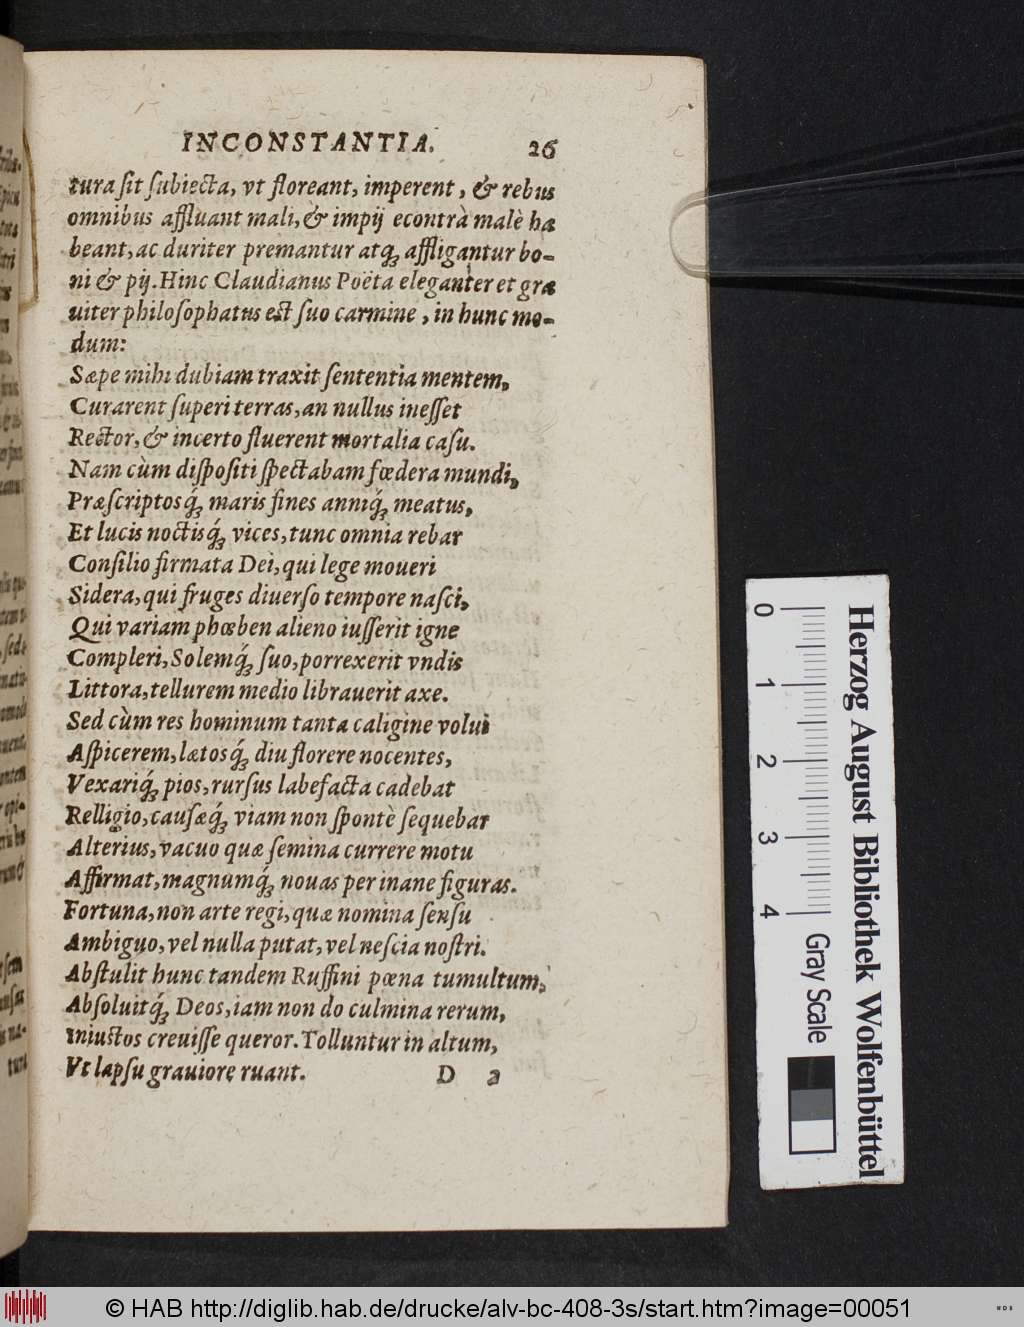 INCONSTANTIA. 26
tura ſit ſubiecta, vt floreant, imperent, & rebus
omnibus affluant mali, & impij econtrà malè ha
beant, ac duriter premantur atqꝫ affligantur bo-
ni & pij. Hinc Claudianus Poëta eleganter et gra
uiter philoſophatus eſt ſuo carmine, in hunc mo-
dum:
Sæpe mihi dubiam traxit ſententia mentem,
Curarent ſuperi terras, an nullus ineſſet
Rector, & incerto fluerent mortalia caſu.
Nam cùm diſpoſiti ſpectabam fœdera mundi,
Præſcriptosq́ꝫ maris fines anniq́ꝫ meatus,
Et lucis noctisq́ꝫ vices, tunc omnia rebar
Conſilio firmata Dei, qui lege moueri
Sidera, qui fruges diuerſo tempore naſci,
Qui variam phœben alieno iuſſerit igne
Compleri, Solemq́ꝫ ſuo, porrexerit vndis
Littora, tellurem medio librauerit axe.
Sed cùm res hominum tanta caligine volui
Aſpicerem, lætosq́ꝫ diu florere nocentes,
Vexariq́ꝫ pios, rurſus labefacta cadebat
Relligio, cauſæq́ꝫ viam non ſpontè ſequebar
Alterius, vacuo quæ ſemina currere motu
Affirmat, magnumq́ꝫ nouas per inane figuras.
Fortuna, non arte regi, quæ nomina ſenſu
Ambiguo, vel nulla putat, vel neſcia noſtri.
Abſtulit hunc tandem Ruffini pœna tumultum,
Abſoluitq́ꝫ Deos, iam non do culmina rerum,
Iniuſtos creuiſſe queror. Tolluntur in altum,
Vt lapſu grauiore ruant. D 2
Herzog August Bibliothek Wolfenbüttel
0 1 2 3 4 Gray Scale
© HAB http://diglib.hab.de/drucke/alv-bc-408-3s/start.htm?image=00051